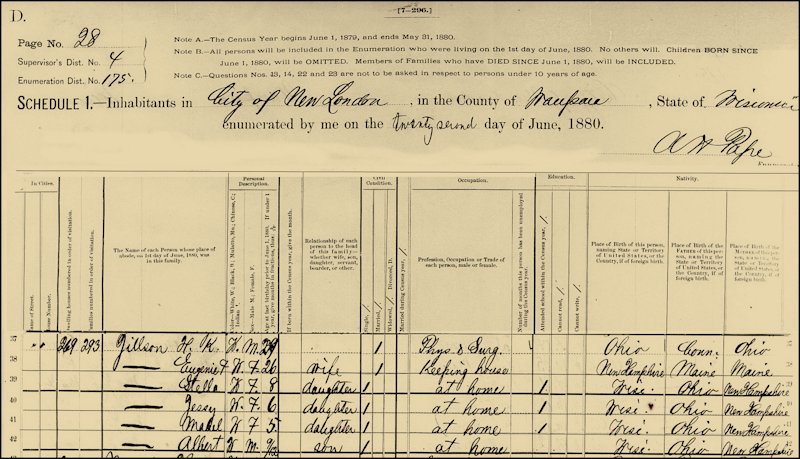 D.
[7-296.]
Page No. 28
Supervisor's Dist. No. 4
Enumeration Dist. No. 175.
Note A.—The Census Year begins June 1, 1879, and ends May 31, 1880.
Note B.—All persons will be included in the Enumeration who were living on the 1st day of June, 1880. No others will. Children BORN SINCE
June 1, 1880, will be OMITTED. Members of Families who have DIED SINCE June 1, 1880, will be INCLUDED.
Note C.—Questions Nos. 13, 14, 22 and 23 are not to be asked in respect to persons under 10 years of age.
SCHEDULE 1.—Inhabitants in City of New London, in the County of Waupaca, State of Wisconsin
enumerated by me on the twenty second day of June, 1880.
In Cities.
Name of Street.
House Number.
Dwelling houses numbered in order of visitation.
Families numbered in order of visitation.
The Name of each Person whose place of
abode, on 1st day of June, 1880, was
in this family.
Personal
Description.
If born within the Census year, give the month.
Relationship of each
person to the head
of this family—
whether wife, son,
daughter, servant,
boarder, or other.
Civil
Condition.
Single, /
Married, /
Widowed, / Divorced, D.
Married during Census year, /
Occupation.
Profession, Occupation or Trade of
each person, male or female.
Number of months this person has been unemployed
during the Census year.
Education.
Attended school within the Census year, /
Cannot read, /
Cannot write, /
Nativity.
Place of Birth of this person,
naming State or Territory
of United States, or
the Country, if of foreign birth.
Place of Birth of the
FATHER of this person,
naming the State
or Territory of
United States, or
the Country, if of
foreign birth.
Place of Birth of the
MOTHER of this person,
naming the State
or Territory of
United States, or
the Country, if of
foreign birth.
37 " " 269 293 Gillson H. K. W. M. 29 / Phys & Surg. Ohio Conn. Ohio
38 — Eugenie F W. F. 26 wife / Keeping house New Hampshire Maine Maine
39 — Stella W. F. 8 daughter / at home / Wisc. Ohio New Hampshire
40 — Jessy W. F. 6 daughter / at home / Wisc. Ohio New Hampshire
41 — Mabel W F 5 daughter / at home / Wisc. Ohio New Hampshire
42 — Albert W M. son / at home Wisc. Ohio New Hampshire